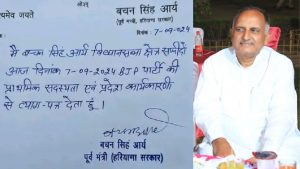 त्यमेव जयते
बचन सिंह आर्य
(पूर्व मंत्री, हरियाणा सरकार)
7-09-024
मैं बचन सिंह आर्य विधानसभा क्षेत्र सफीदों
आज दिनांक 7-09-2024 BJP पार्टी की
प्राथमिक सदस्यता एवं प्रदेश कार्यकारणी
से त्याग-पत्र देता हूं।
बचन सिंह आर्य
पूर्व मंत्री (हरियाणा सरकार)